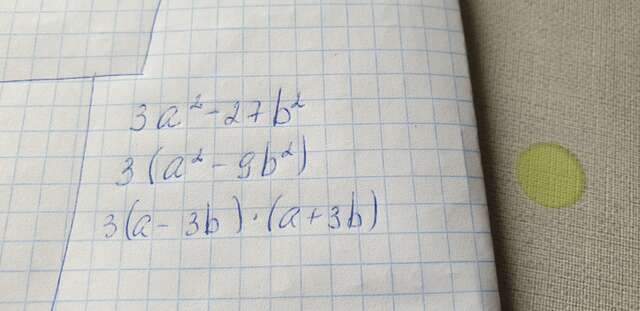 3a² - 27b²
3(a² - 9b²)
3(a - 3b)·(a + 3b)